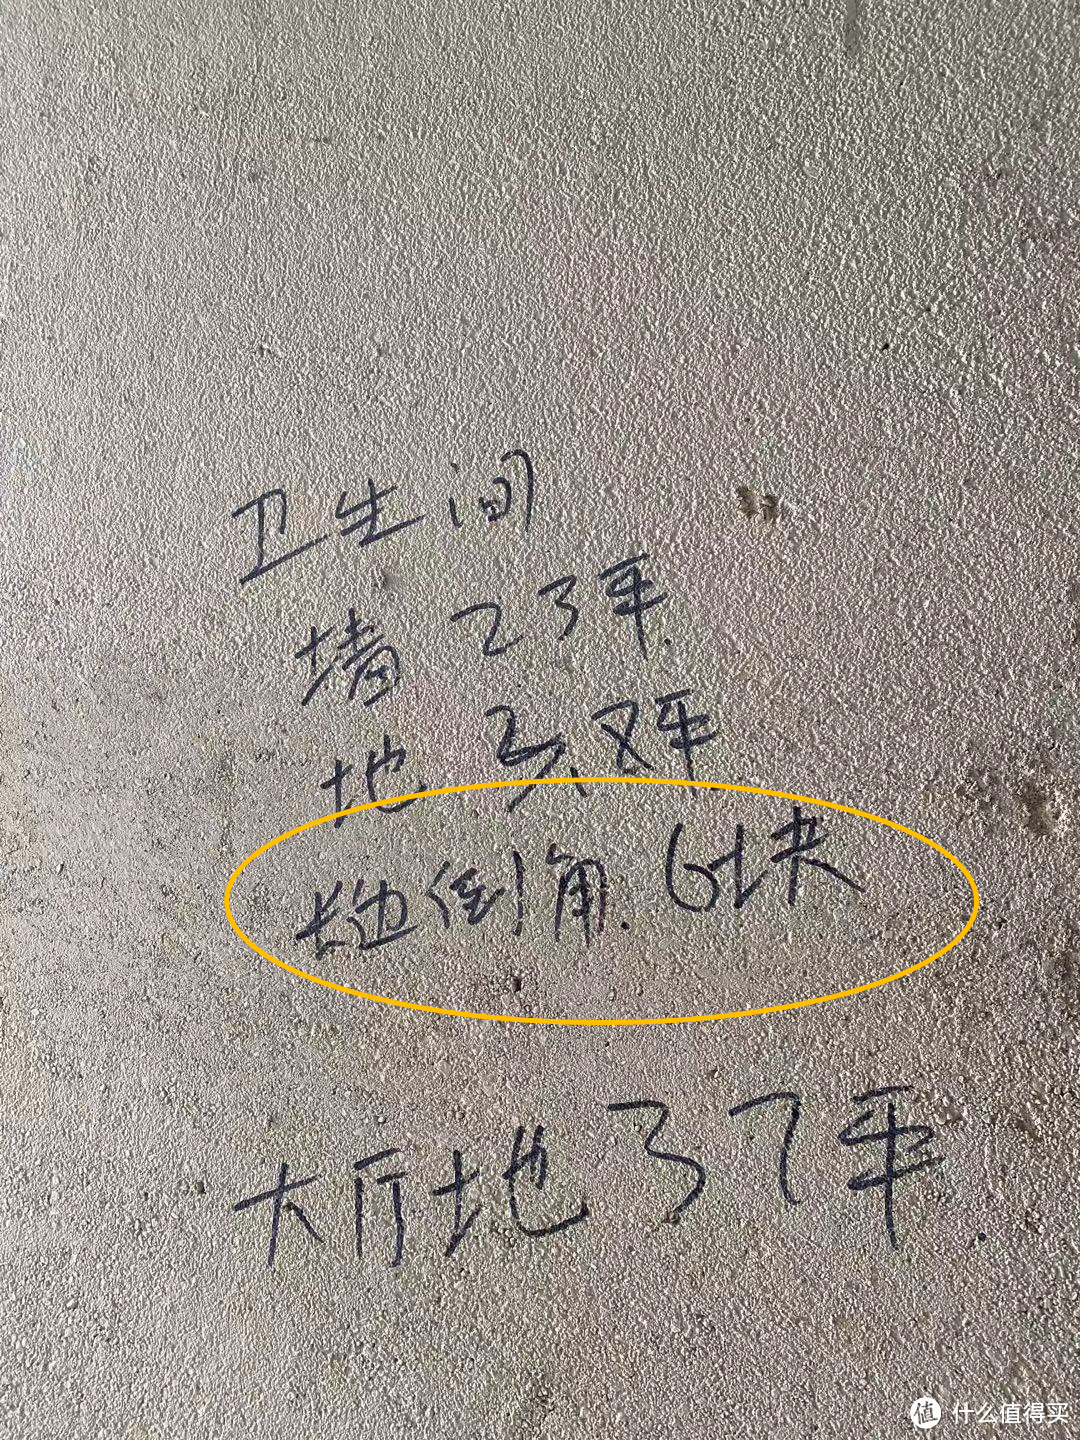 卫生间
墙 23平.
地 平
长边倒角. 6块
大厅地 37平.
值 什么值得买